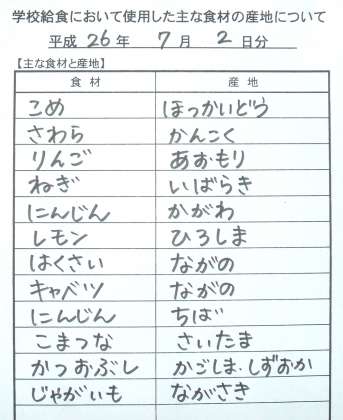 学校給食において使用した主な食材の産地について
平成 26 年 7 月 2 日分
【主な食材と産地】
食材 産地
こめ ほっかいどう
さわら かんこく
りんご あおもり
ねぎ いばらき
にんじん かがわ
レモン ひろしま
はくさい ながの
キャベツ ながの
にんじん ちば
こまつな さいたま
かつおぶし かごしま・しずおか
じゃがいも ながさき